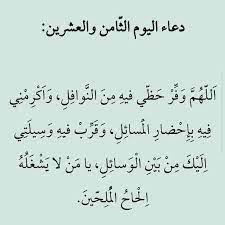 دعاء اليوم الثّامن والعشرين:
اَللّهُمَّ وَفِّرْ حَظّي فيهِ مِنَ النَّوافِلِ، وَاَكْرِمْني
فيهِ بِاِحْضارِ الْمَسائِلِ، وَقَرِّبْ فيهِ وَسيلَتي
اِلَيْكَ مِنْ بَيْنِ الْوَسائِلِ، يا مَنْ لا يَشْغَلُهُ
اِلْحاحُ الْمُلِحّينَ.